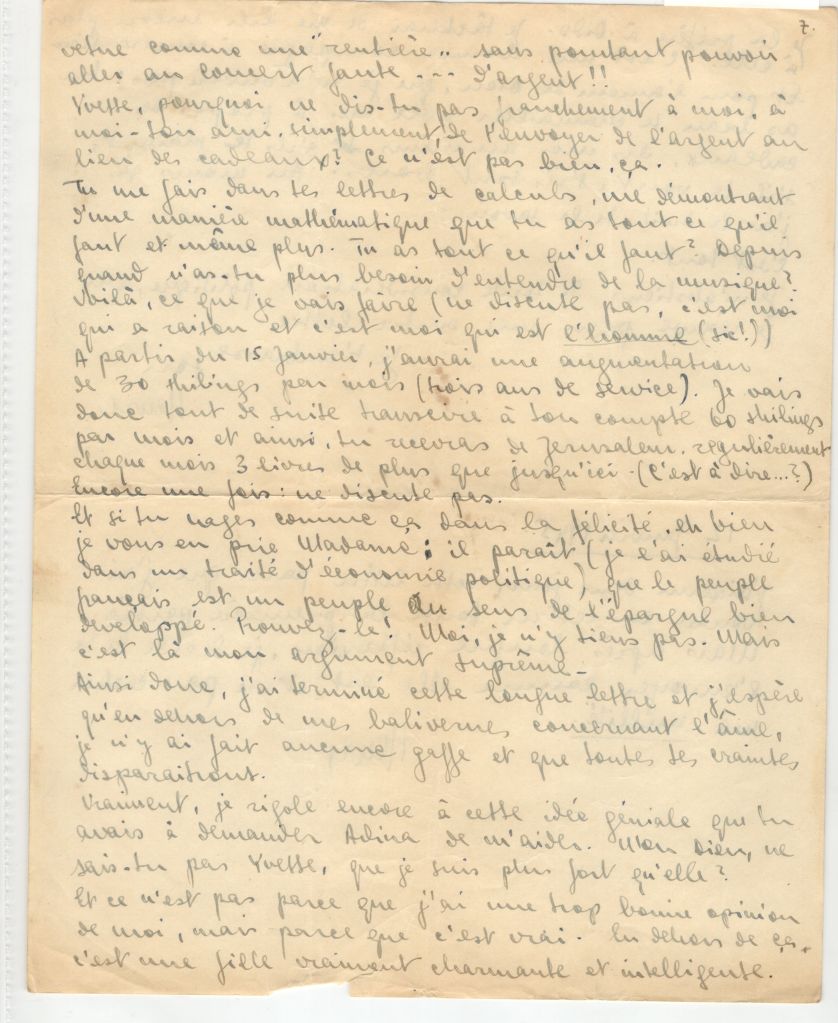 7.
vêtue comme une "rentière" sans pourtant pouvoir
aller au concert faute --- d'argent!!
Yvette, pourquoi ne dis-tu pas franchement à moi, à
moi-ton ami, simplement, de t'envoyer de l'argent au
lieu des cadeaux? Ce n'est pas bien, ça.
Tu me fais dans tes lettres de calculs, me démontrant
d'une manière mathématique que tu as tout ce qu'il
faut et même plus. Tu as tout ce qu'il faut? Depuis
quand n'as-tu plus besoin d'entendre de la musique?
Voilà, ce que je vais faire (ne discute pas, c'est moi
qui a raison et c'est moi qui est l'homme (sic!))
A partir du 15 Janvier, j'aurai une augmentation
de 30 shilings par mois (trois ans de service). Je vais
donc tout de suite transcrire à ton compte 60 shilings
par mois et ainsi, tu recevras de Jerusalem, regulièrement
chaque mois 3 livres de plus que jusqu'ici. (C'est à dire...?)
Encore une fois: ne discute pas.
Et si tu nages comme ça dans la félicité, eh bien
je vous en prie Madame: il paraît (je l'ai étudié
dans un traité d'économie politique) que le peuple
français est un peuple au sens de l'épargne bien
developpé. Prouvez-le! Moi, je n'y tiens pas. Mais
c'est là mon argument suprême-
Ainsi donc, j'ai terminé cette longue lettre et j'espère
qu'en dehors de mes balivernes concernant l'âme,
je n'y ai fait aucune gaffe et que toutes tes craintes
disparaitront.
Vraiment, je rigole encore à cette idée géniale que tu
avais à demander Adina de m'aider. Mon Dieu, ne
sais-tu pas Yvette, que je suis plus fort qu'elle?
Et ce n'est pas parce que j'ai une trop bonne opinion
de moi, mais parce que c'est vrai. En dehors de ça,
c'est une fille vraiment charmante et intelligente.